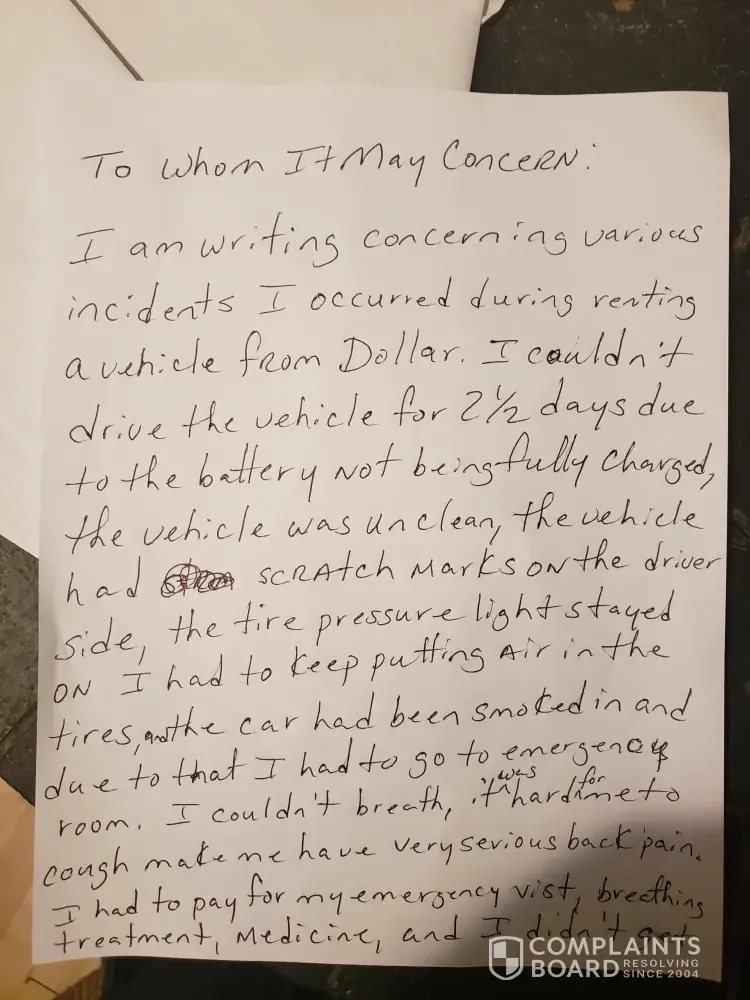 To Whom It May Concern:
I am writing concerning various
incidents I occurred during renting
a vehicle from Dollar. I couldn't
drive the vehicle for 2½ days due
to the battery not being fully charged,
the vehicle was unclean, the vehicle
had scratch marks on the driver
side, the tire pressure light stayed
on I had to keep putting air in the
tires, and the car had been smoked in and
due to that I had to go to emergency
room. I couldn't breath, it was hard for me to
cough make me have very serious back pain.
I had to pay for my emergency vist, breathing
treatment, medicine, and I didn't get
COMPLAINTS
BOARD RESOLVING
SINCE 2004